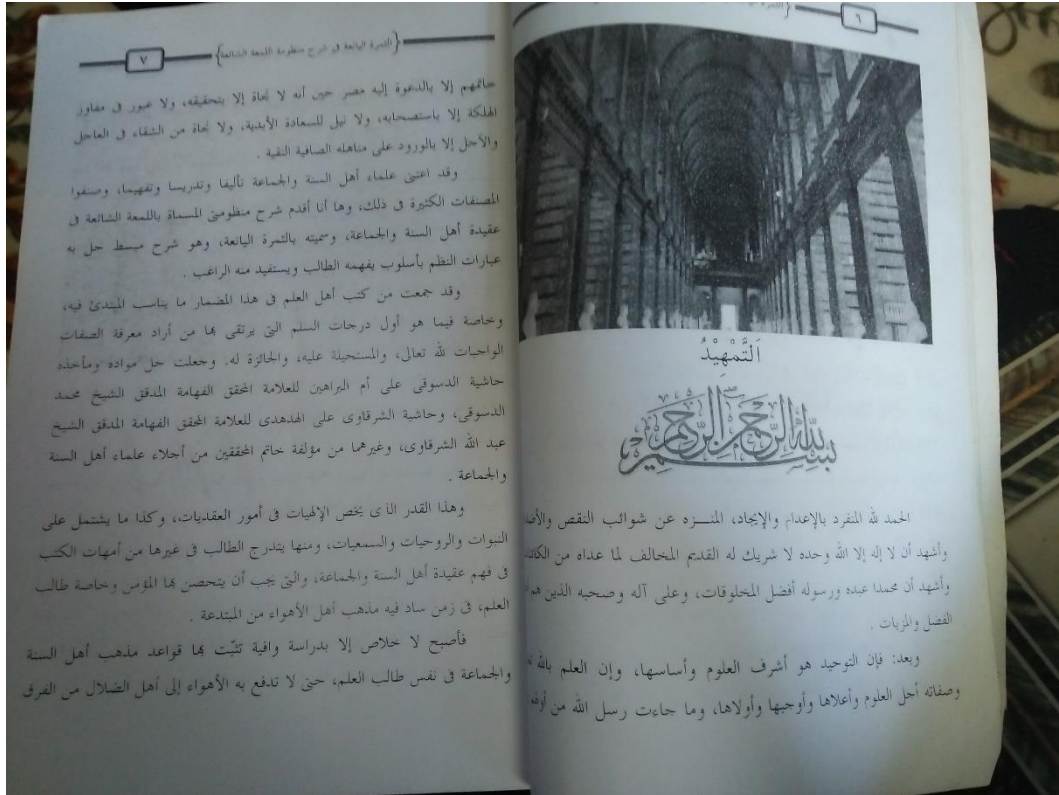 ٦
التَّمْهِيْدُ
بسم الله الرحمن الرحيم
الحمد لله المنفرد بالإعدام والإيجاد، المنـزه عن شوائب النقص
وأشهد أن لا إله إلا الله وحده لا شريك له القديم المخالف لما عداه من
وأشهد أن محمدا عبده ورسوله أفضل المخلوقات، وعلى آله وصحبه الذين هم
الفضل والمزيات .
وبعد: فإن التوحيد هو أشرف العلوم وأساسها، وإن العلم بالله
وصفاته أجل العلوم وأعلاها وأوجبها وأولاها، وما جاءت رسل الله من
٧
{الثمرة اليانعة فى شرح منظومة اللمعة الشائعة}
خاتمهم إلا بالدعوة إليه مصر حين أنه لا نجاة إلا بتحقيقه، ولا عبور فى مفاوز
الهلكة إلا باستصحابه، ولا نيل للسعادة الأبدية، ولا نجاة من الشقاء فى العاجل
والآجل إلا بالورود على مناهله الصافية النقية .
وقد اعتنى علماء أهل السنة والجماعة تأليفا وتدريسا وتفهيما، وصنفوا
المصنفات الكثيرة فى ذلك، وها أنا أقدم شرح منظومتى المسماة باللمعة الشائعة فى
عقيدة أهل السنة والجماعة، وسميته بالثمرة اليانعة، وهو شرح مبسط حل به
عبارات النظم بأسلوب يفهمه الطالب ويستفيد منه الراغب .
وقد جمعت من كتب أهل العلم فى هذا المضمار ما يناسب المبتدئ فيه،
وخاصة فيما هو أول درجات السلم التى يرتقى بها من أراد معرفة الصفات
الواجبات لله تعالى، والمستحيلة عليه، والجائزة له. وجعلت جل مواده ومأخذه
حاشية الدسوقى على أم البراهين للعلامة المحقق الفهامة المدقق الشيخ محمد
الدسوقى، وحاشية الشرقاوى على الهدهدى للعلامة المحقق الفهامة المدقق الشيخ
عبد الله الشرقاوى، وغيرهما من مؤلفة خاتم المحققين من أجلاء علماء أهل السنة
والجماعة .
وهذا القدر الذى يخص الإلهيات فى أمور العقديات، وكذا ما يشتمل على
النبوات والروحيات والسمعيات، ومنها يتدرج الطالب فى غيرها من أمهات الكتب
فى فهم عقيدة أهل السنة والجماعة، والتى يجب أن يتحصن بها المؤمن وخاصة طالب
العلم، فى زمن ساد فيه مذهب أهل الأهواء من المبتدعة .
فأصبح لا خلاص إلا بدراسة وافية تثبّت بها قواعد مذهب أهل السنة
والجماعة فى نفس طالب العلم، حتى لا تدفع به الأهواء إلى أهل الضلال من الفرق